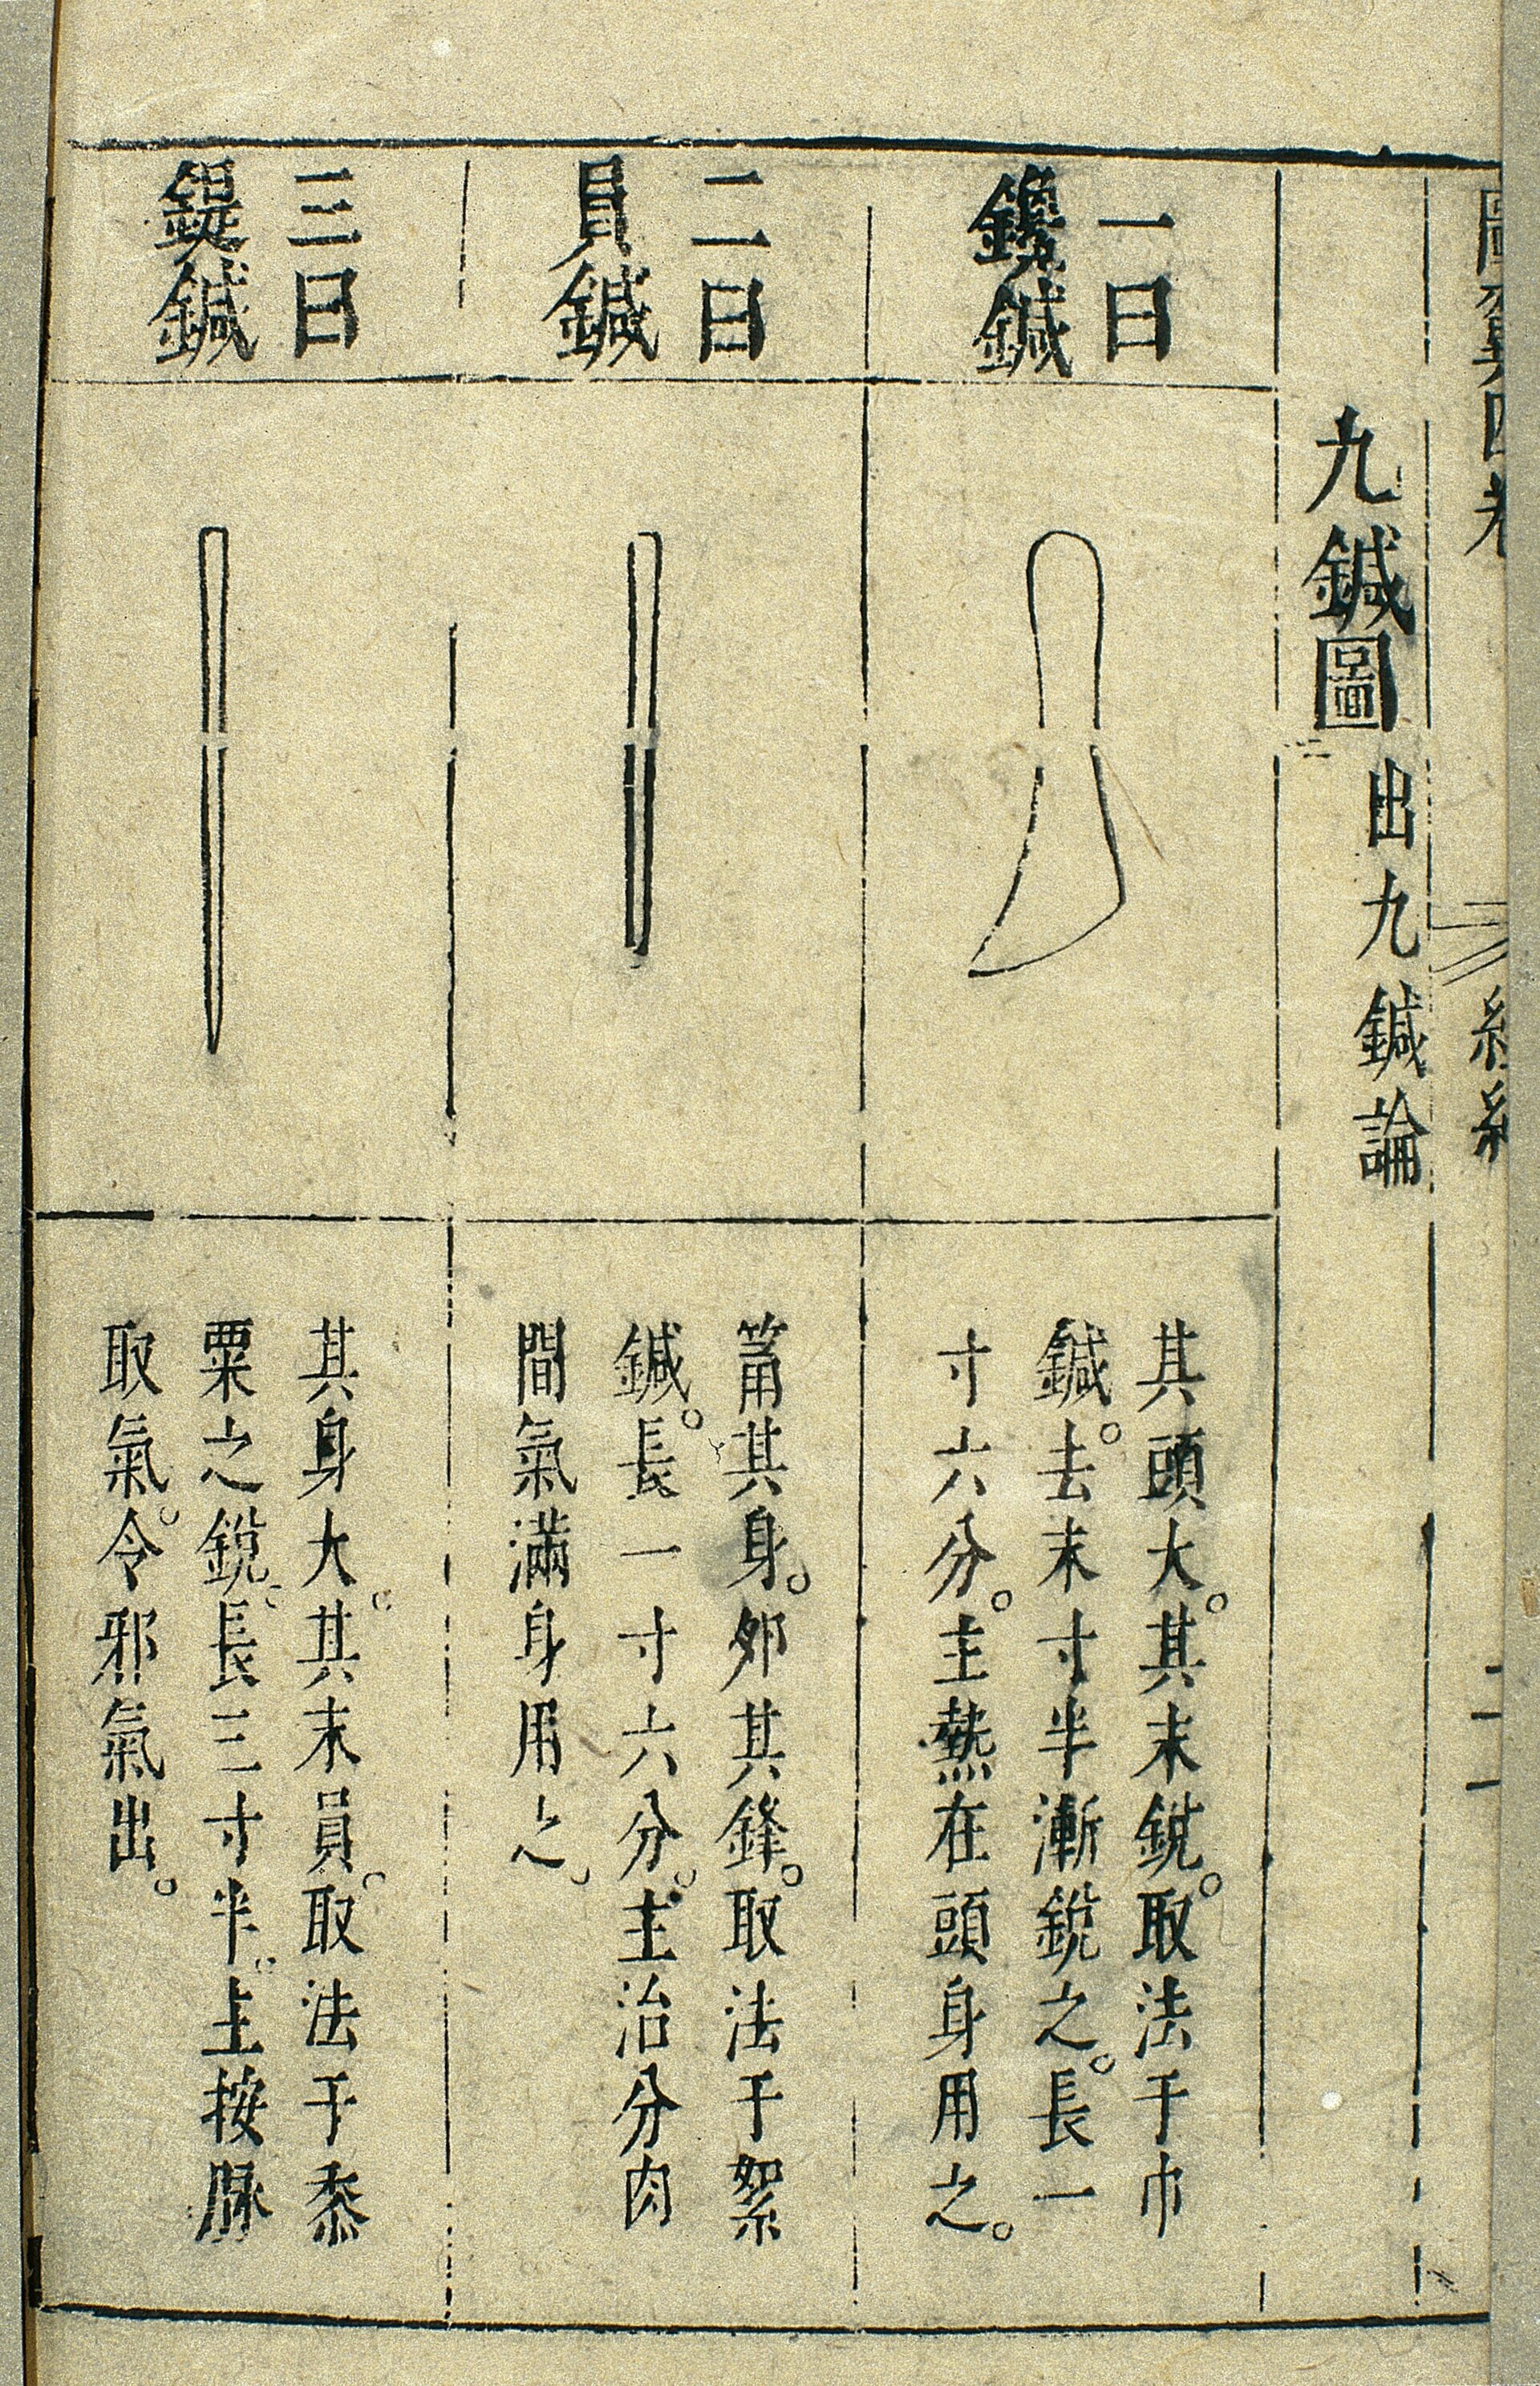 圖翼四卷
九鍼圖 出九鍼論
一曰
鑱鍼
其頭大。其末銳。取法于巾
鍼。去末寸半漸銳之。長一
寸六分。主熱在頭身用之。
二曰
員鍼
筩其身。夘其鋒。取法于絮
鍼。長一寸六分。主治分肉
間氣滿身用之。
三曰
鍉鍼
其身大。其末員。取法于黍
粟之銳。長三寸半。主按脉
取氣。令邪氣出。